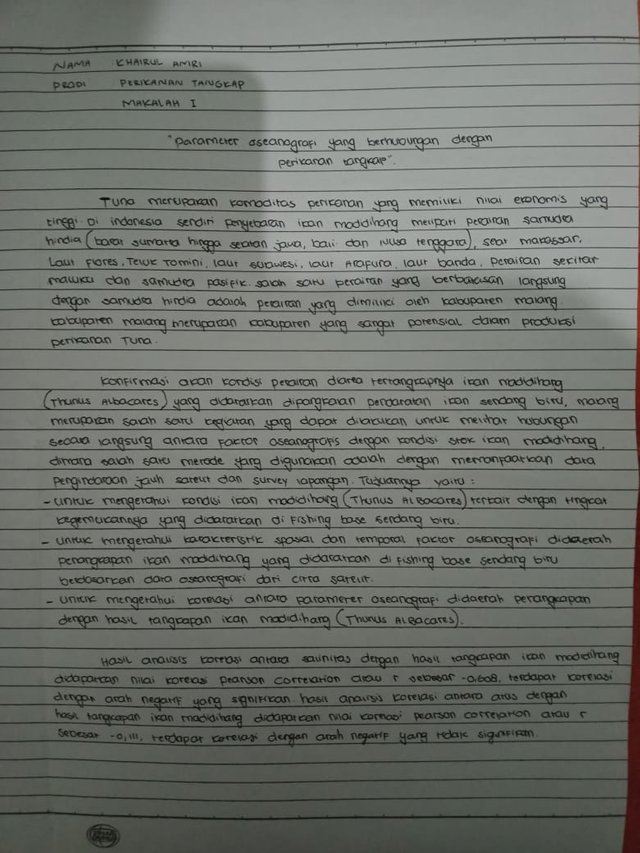 NAMA KHAIRUL AMRI
PRODI PERIKANAN TANGKAP
MAKALAH I
"Parameter oseanografi yang berhubungan dengan
perikanan tangkap".
Tuna merupakan komoditas perikanan yang memiliki nilai ekonomis yang
tinggi. Di indonesia sendiri penyebaran ikan madidihang meliputi perairan samudra
hindia (barat sumatra hingga selatan jawa, bali dan Nusa tenggara), selat makassar,
Laut Flores, Teluk Tomini, laut sulawesi, laut Arafura, laut banda, perairan sekitar
maluku dan samudra pasifik. salah satu perairan yang berbatasan langsung
dengan samudra hindia adalah perairan yang dimiliki oleh kabupaten malang.
kabupaten malang merupakan kabupaten yang sangat potensial dalam produksi
perikanan Tuna.
Konfirmasi akan kondisi perairan diarea tertangkapnya ikan madidihang
(Thunus Albacares) yang didaratkan dipangkalan pendaratan ikan sendang biru, malang
merupakan salah satu kegiatan yang dapat dilakukan untuk melihat hubungan
secara langsung antara factor oseanografis dengan kondisi stok ikan madidihang,
dimana salah satu metode yang digunakan adalah dengan memanfaatkan data
penginderaan jauh satelit dan survey lapangan. Tujuannya yaitu :
- untuk mengetahui kondisi ikan madidihang (Thunus Albacares) terkait dengan tingkat
kegemukannya yang didaratkan di Fishing base sendang biru.
- untuk mengetahui karakteristik spasial dan temporal factor oseanografi didaerah
penangkapan ikan madidihang yang didaratkan di fishing base sendang biru
berdasarkan data oseanografi dari citra satelit.
- untuk mengetahui korelasi antara parameter oseanografi didaerah penangkapan
dengan hasil tangkapan ikan madidihang (Thunus Albacares).
Hasil analisis korelasi antara salinitas dengan hasil tangkapan ikan madidihang
didapatkan nilai korelasi pearson correlation atau r sebesar -0,608, terdapat korelasi
dengan arah negatif yang signifikan hasil analisis korelasi antara arus dengan
hasil tangkapan ikan madidihang didapatkan nilai korelasi pearson correlation atau r
sebesar -0,111, terdapat korelasi dengan arah negatif yang tidak signifikan.